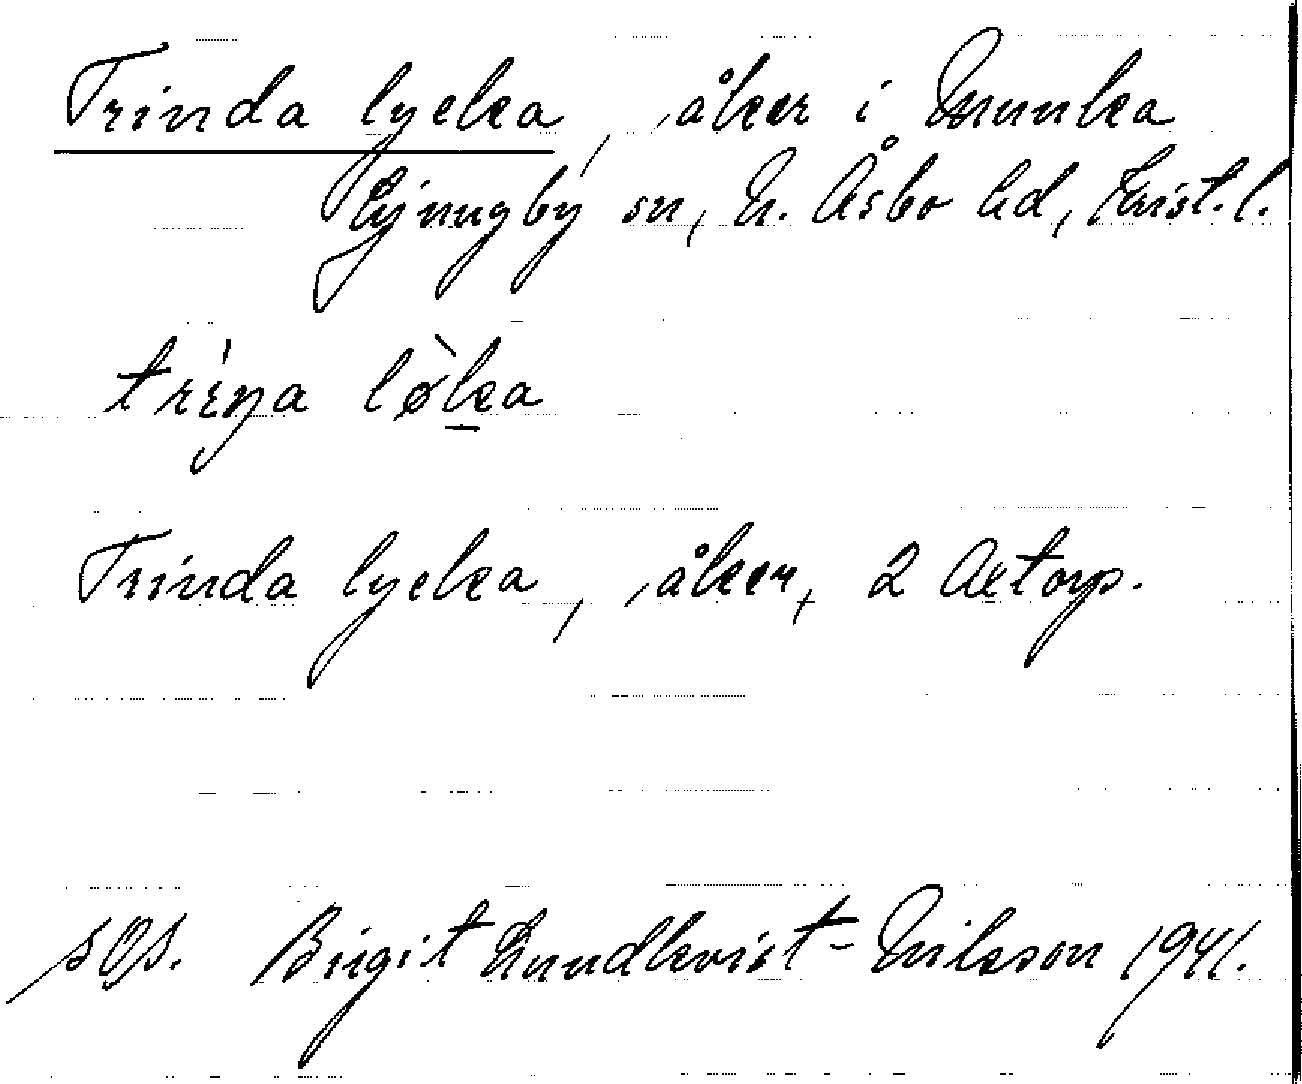 Trinda lycka, åker i Munka
Ljungby sn, N. Åsbo hd, Krist. l.
trìn̥a lø̀ka
Trinda lycka, åker, 2 Axtorp.
Birgit Lundkvist-Nilsson 1941.